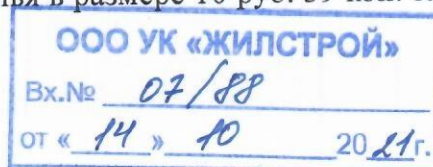 в размере 10 руб. 39 коп.
ООО УК «ЖИЛСТРОЙ»
Вх.№ 07/88
от « 14 » 10 2021г.